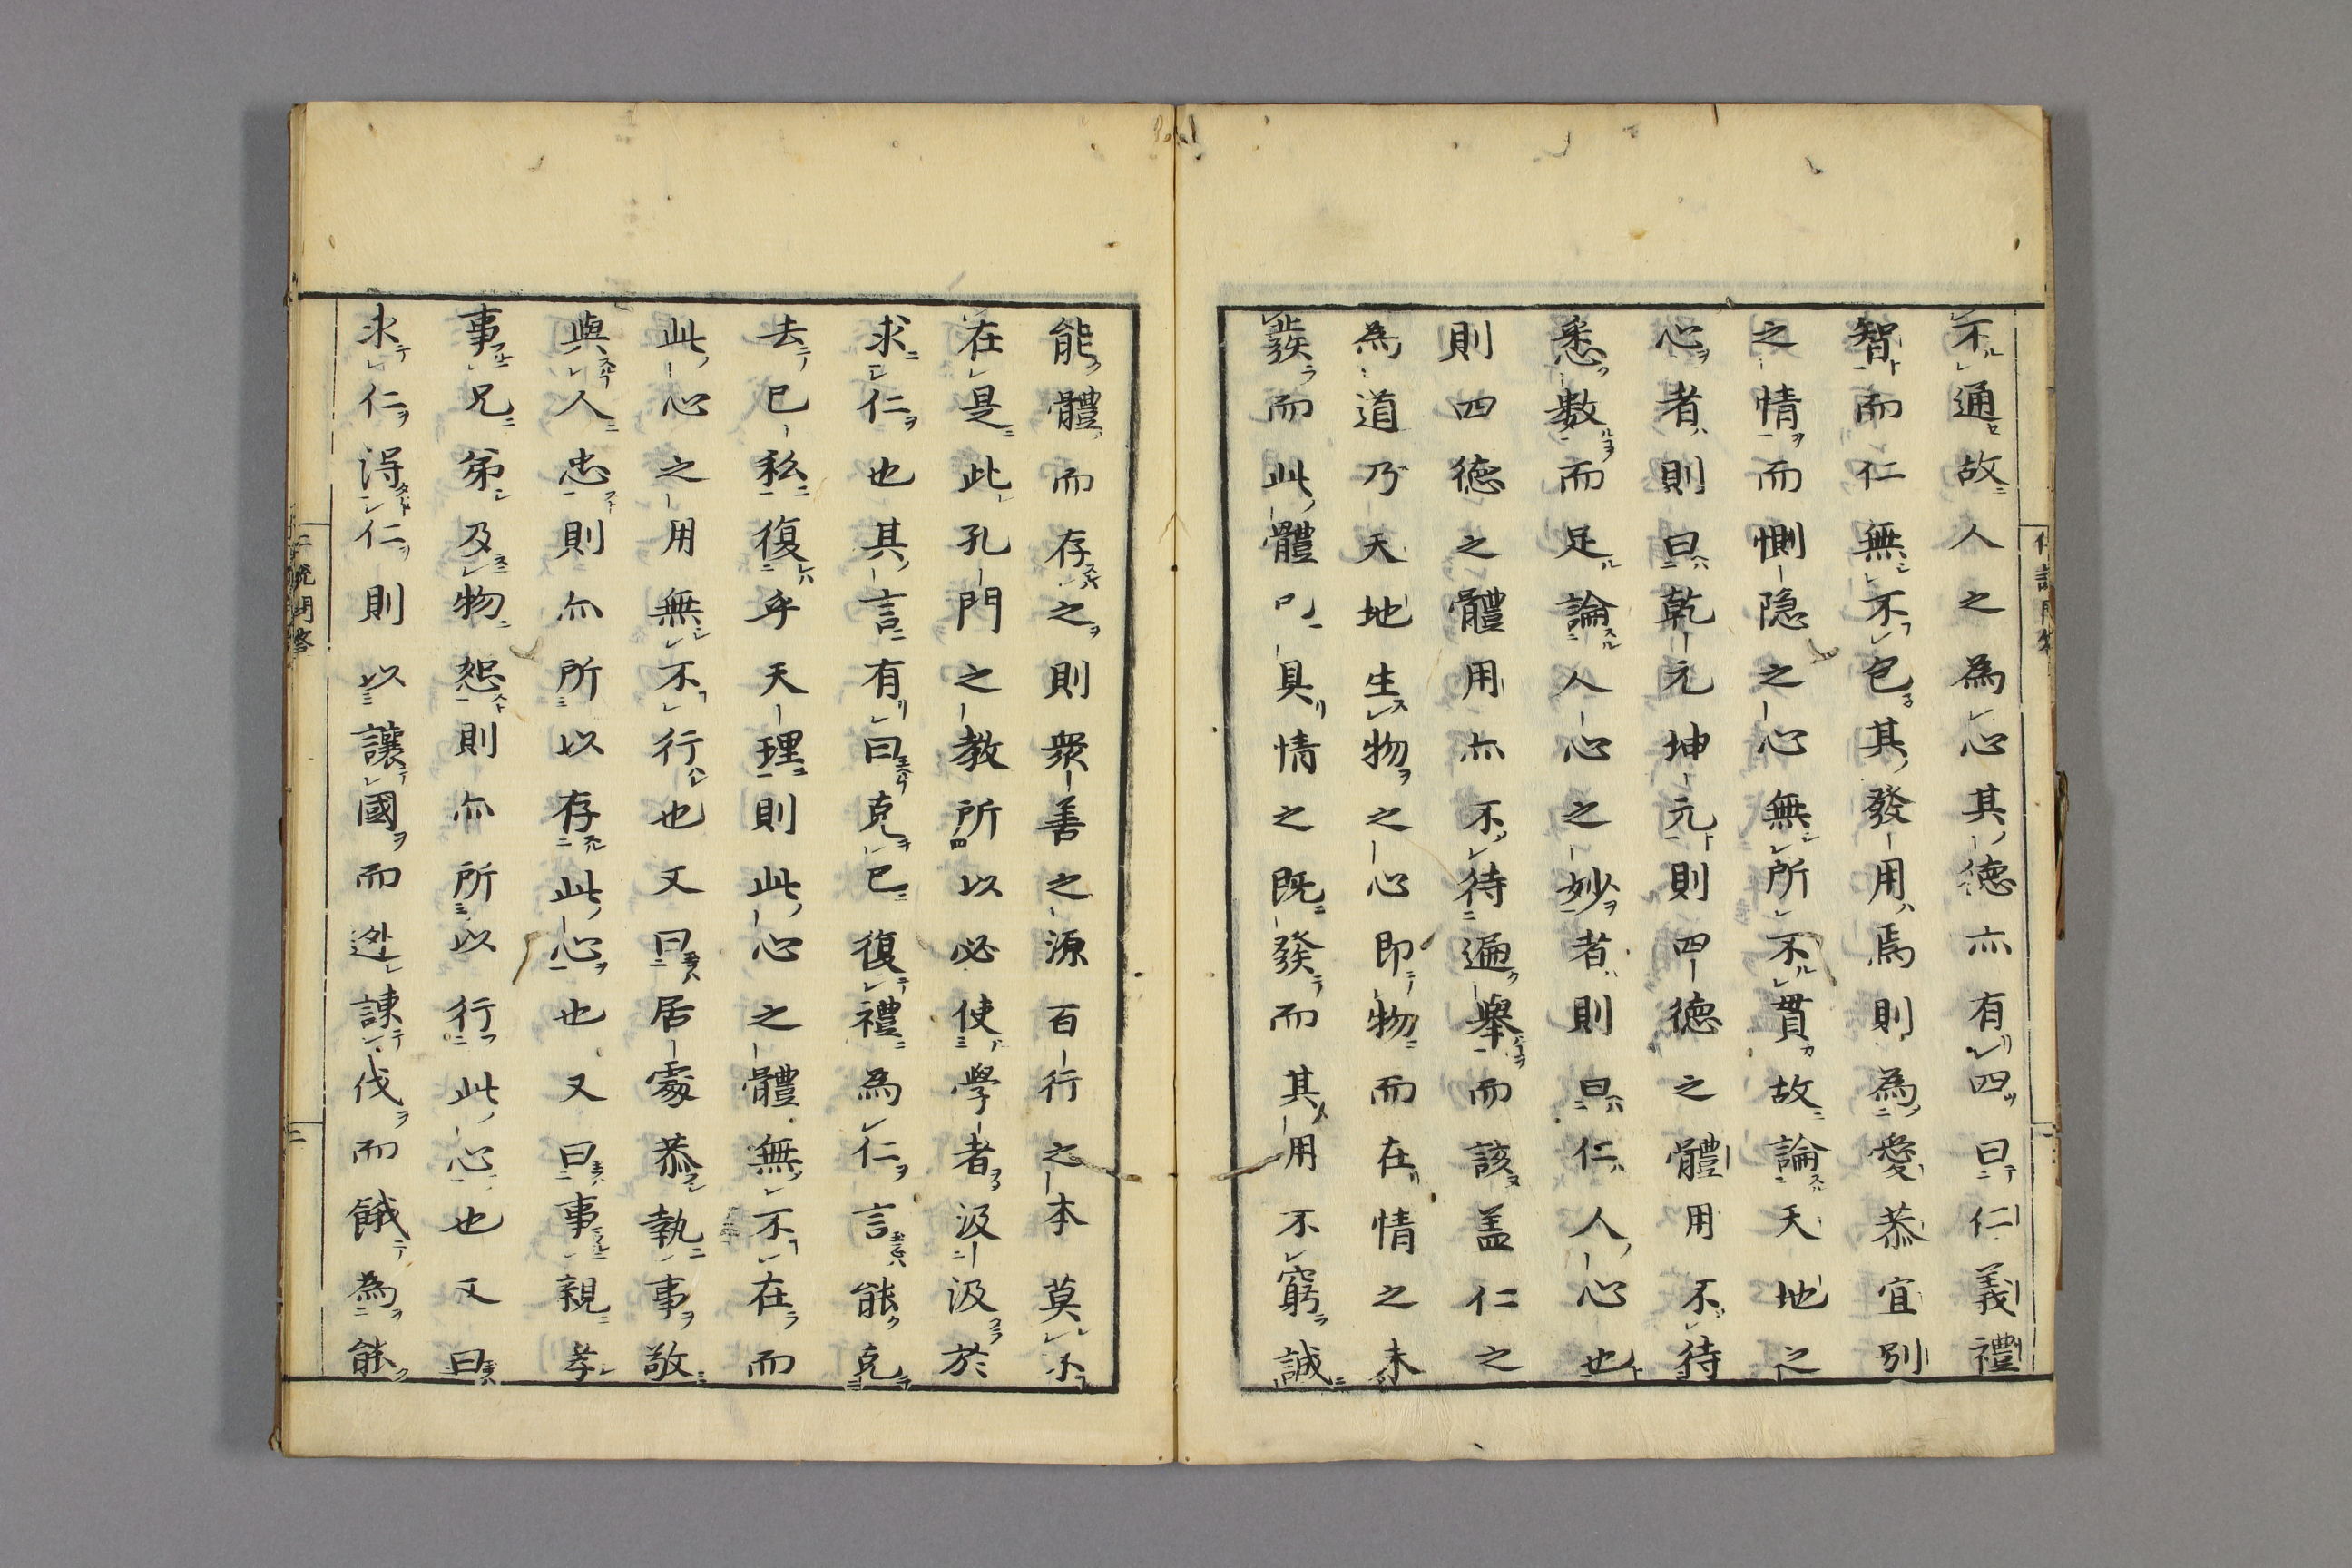 不通故人之為心其德亦有四曰仁義禮
智而仁無不包其發用焉則為愛恭宜別
之情而惻隠之心無所不貫故論天地之
心者則曰乾元坤元則四德之體用不待
悉數而足論人心之妙者則曰仁人心也
則四德之體用亦不待遍舉而該盖仁之
為道乃天地生物之心即物而在情之未
發而此體已具情之既發而其用不窮誠
能體而存之則衆善之源百行之本莫不
在是此孔門之教所以必使學者汲汲於
求仁也其言有曰克己復禮為仁言能克
去己私復乎天理則此心之體無不在而
此心之用無不行也又曰居處恭執事敬
與人忠則亦所以存此心也又曰事親孝
事兄弟及物恕則亦所以行此心也又曰
求仁得仁則以讓國而逃諌伐而餓為能
仁説問答
三